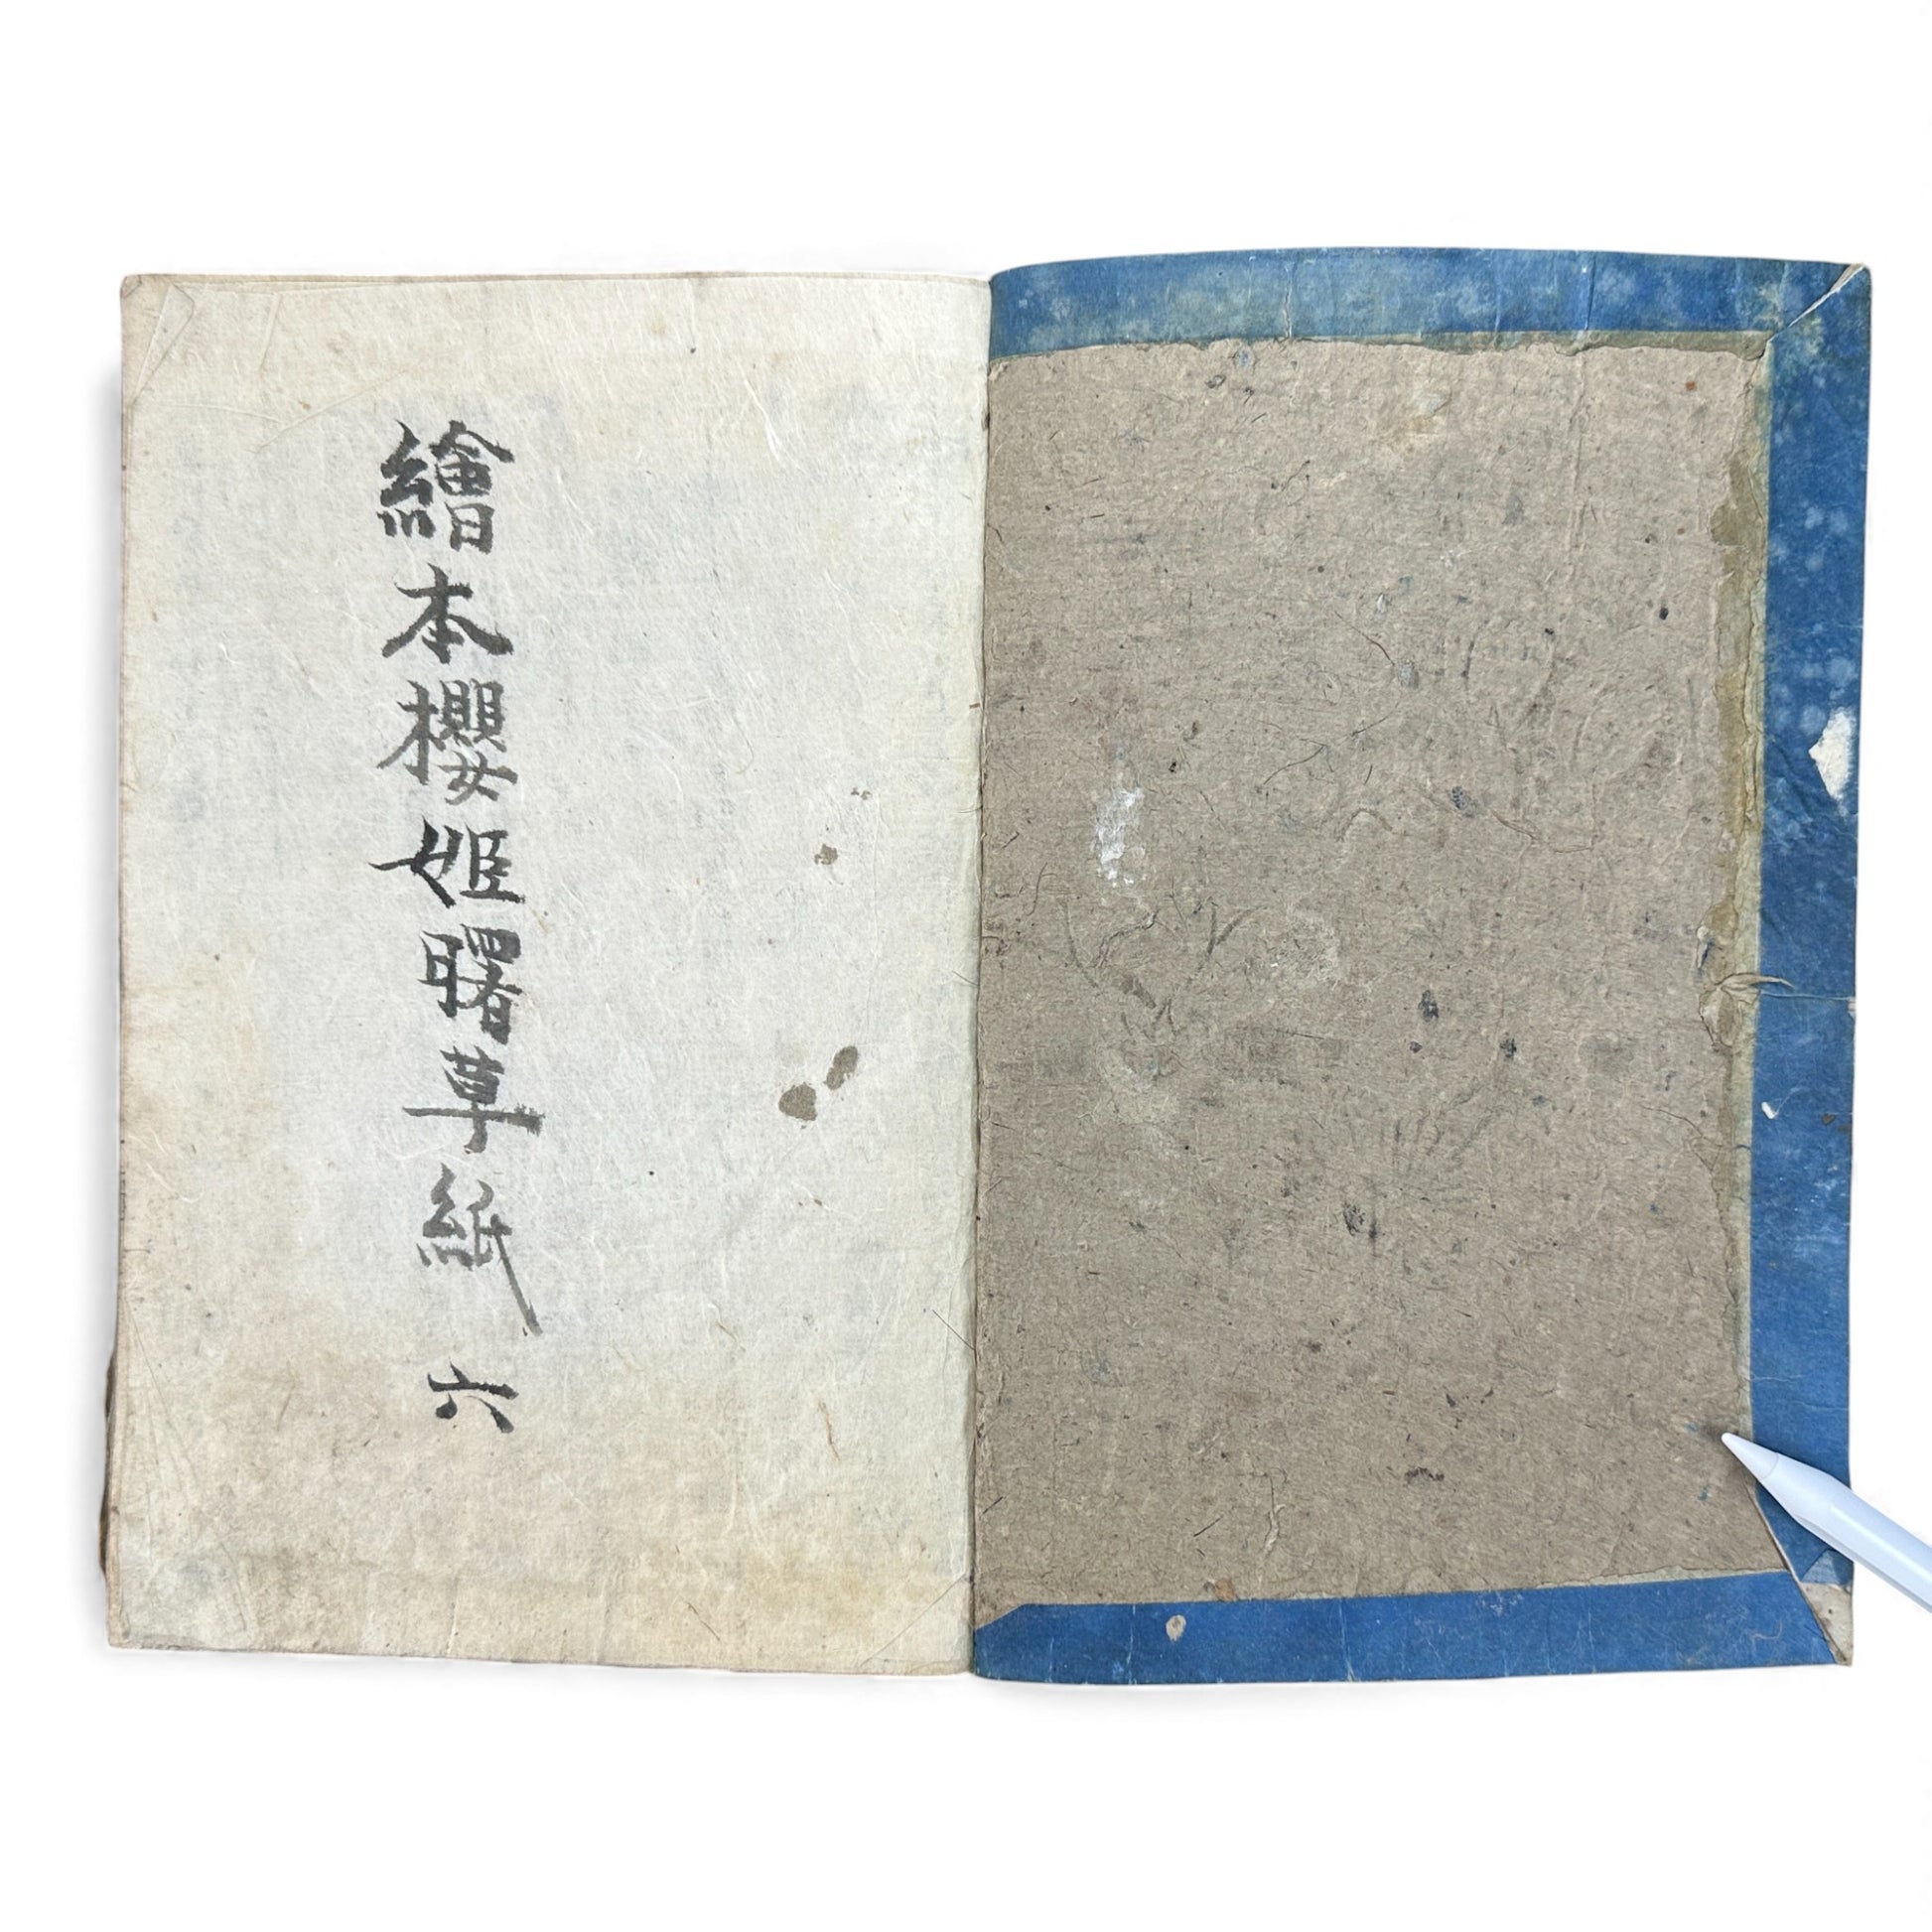 繪本櫻姬曙草紙 六